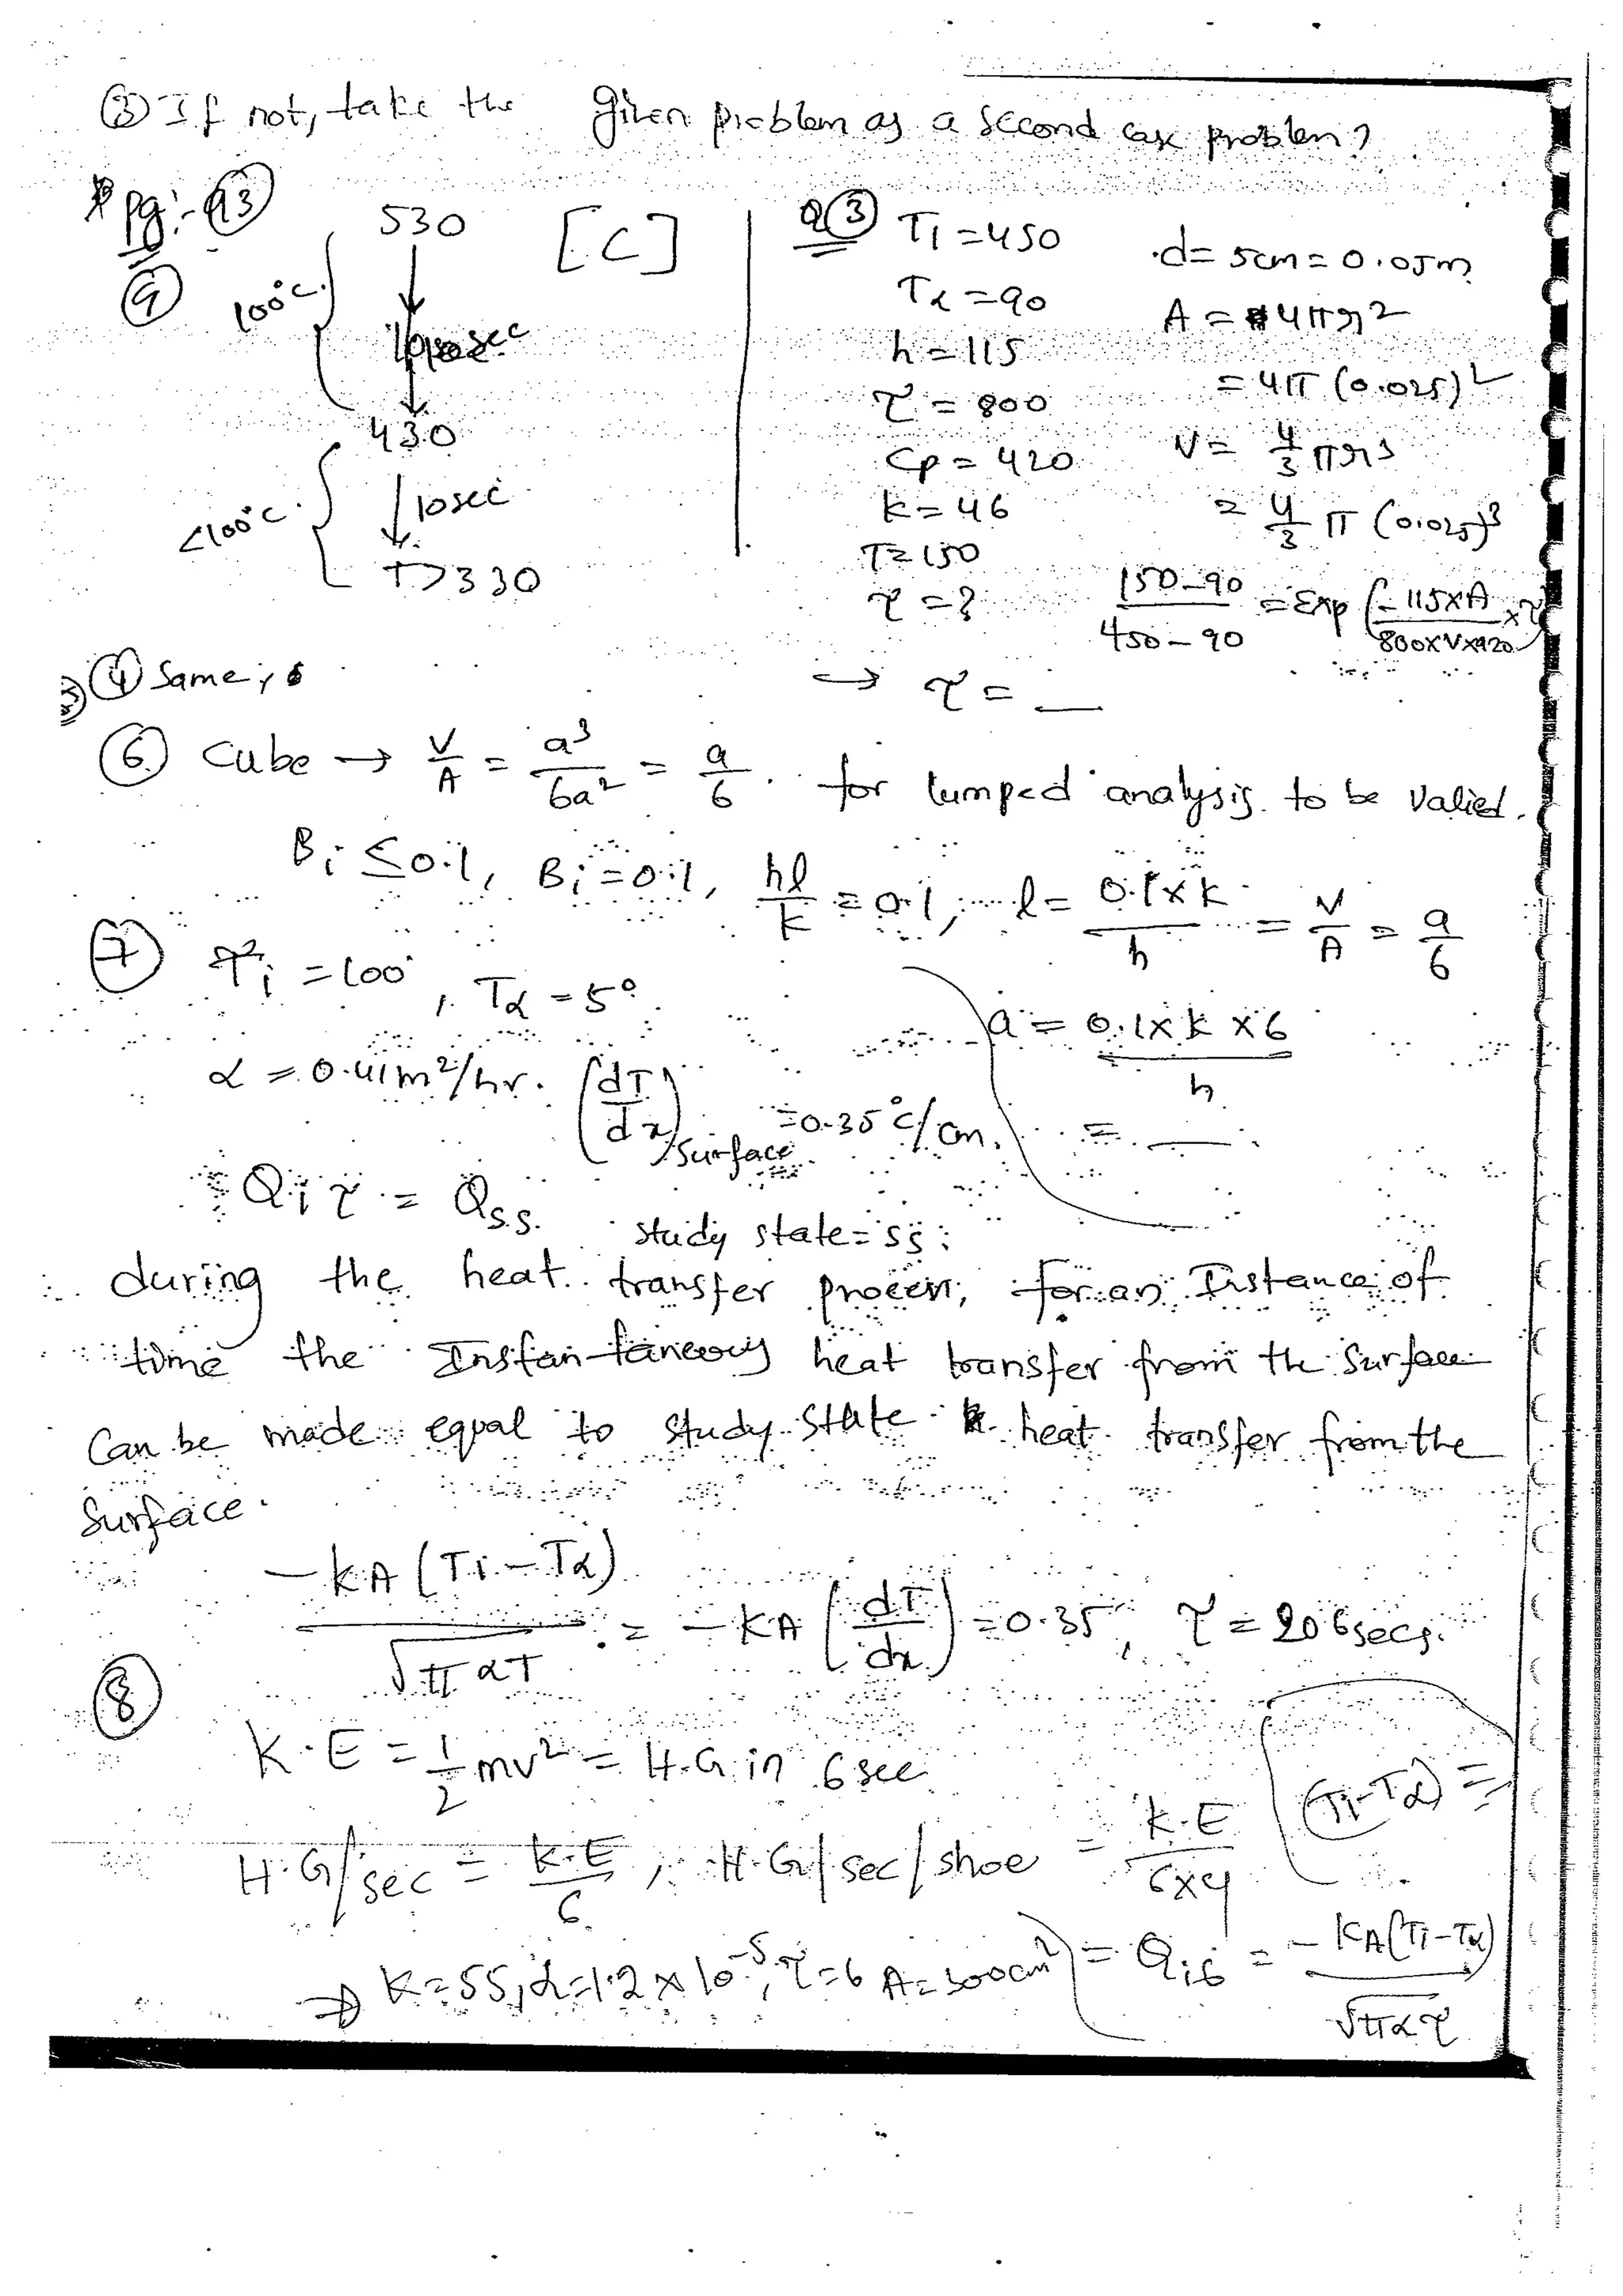 ③ If not, take the given problem as a second case problem?
* pg:- 93
⑨ 530 [C]
100°C
10sec
430
<100°C
10sec
T>330
Q③ T1 = 450
Tα = 90
h = 115
τ = 800
Cp = 420
k = 46
T = 150
τ = ?
d = 5cm = 0.05m
A = 4πr²
= 4π (0.025)²
V = 4/3 πr³
= 4/3 π (0.025)³
(150-90)/(450-90) = Exp (-115×A/(800×V×420) × τ)
→ τ = __
④ Same,
⑥ Cube → V/A = a³/6a² = a/6. for lumped analysis to be Valied.
Bi ≤ 0.1, Bi = 0.1, hl/k = 0.1, l = 0.1×k/h = V/A = a/6
a = 0.1×k×6/h
= __.
⑦ Ti = 100°, Tα = 5°
α = 0.41m²/hr. (dT/dx)surface = 0.35°C/cm.
Qiτ = Qs.s. study state = ss;
during the heat transfer process, for an Instance of
time the Instantaneous heat transfer from the Surface
Can be made equal to study state heat transfer from the
Surface.
-kA(Ti-Tα)/√παT = -KA (dT/dx) = 0.35, τ = 206secs.
⑧
K.E = 1/2 mv² = H.G in 6sec
H.G/sec = K.E/6, H.G/sec/shoe = K.E/6×4
(Ti-Tα) =
⇒ K=55, α=1.2×10⁻⁵, τ=6 A=300cm² = Qi6 = -KA(Ti-Tα)/√πατ